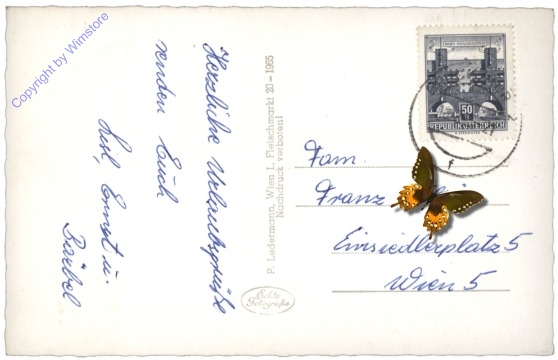 Copyright by Wimstore
Herzliche Urlaubsgrüße
senden Euch
Lisl, Ernst u.
Bärbel
P. Ledermann, Wien I., Fleischmarkt 20 - 1965
Nachdruck verboten!
Echte
Fotografie
50
REPUBLIK ÖSTERREICH
Fam.
Franz
Einsiedlerplatz 5
Wien 5